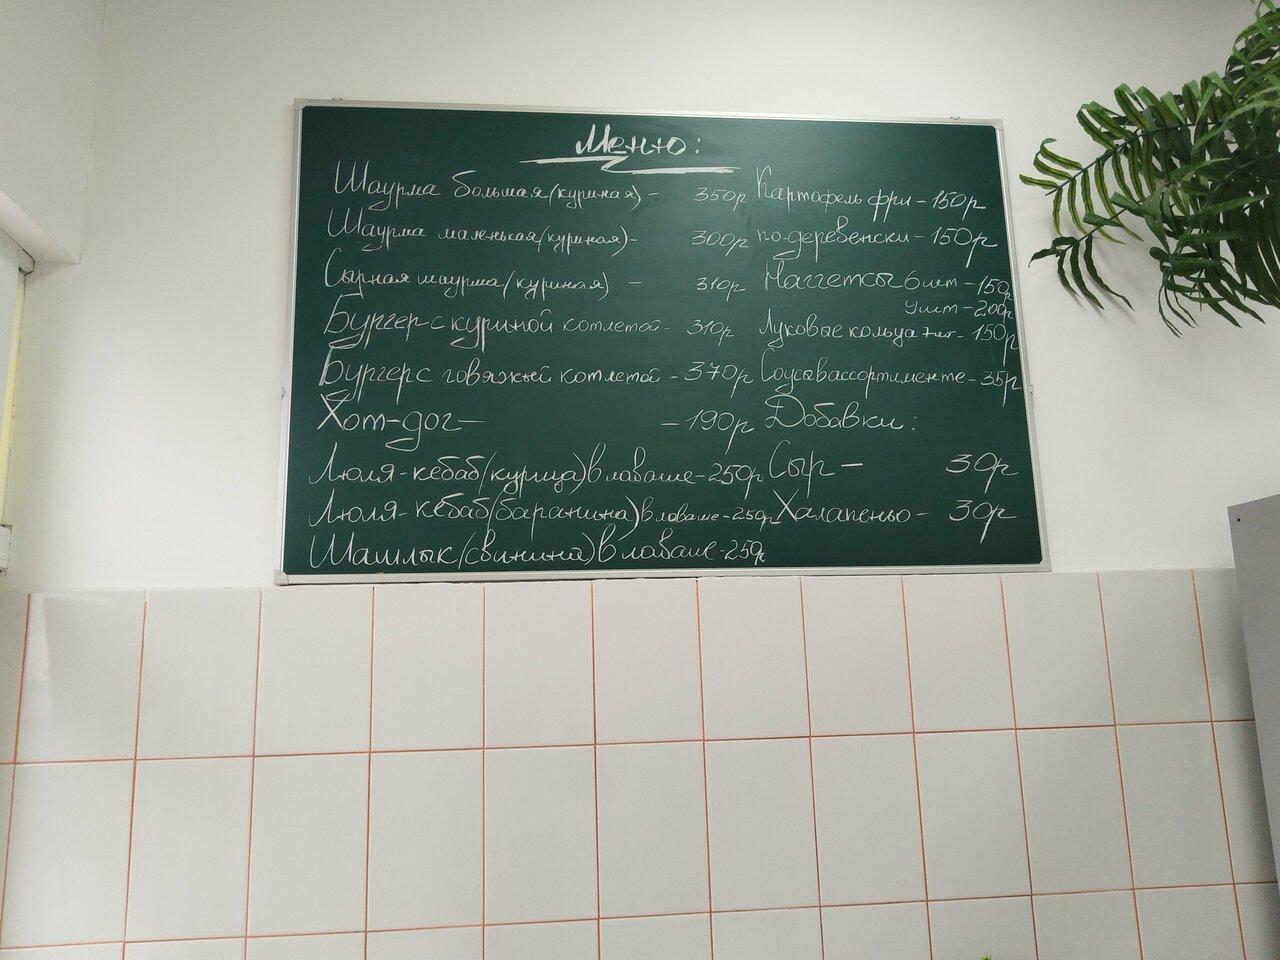 Меню:
Шаурма большая (куриная) - 350р
Шаурма маленькая (куриная) - 300р
Сырная шаурма (куриная) - 310р
Бургер с куриной котлетой - 310р
Бургер с говяжьей котлетой - 370р
Хот-дог - - 190р
Люля-кебаб (курица) в лаваше - 250р
Люля-кебаб (баранина) в лаваше - 250р
Шашлык (свинина) в лаваше - 250р
Картофель фри - 150р
по-деревенски - 150р
Наггетсы 6шт - 150р
9шт - 200р
Луковые кольца 7шт - 150р
Соусы в ассортименте - 35р
Добавки:
Сыр - 30р
Халапеньо - 30р